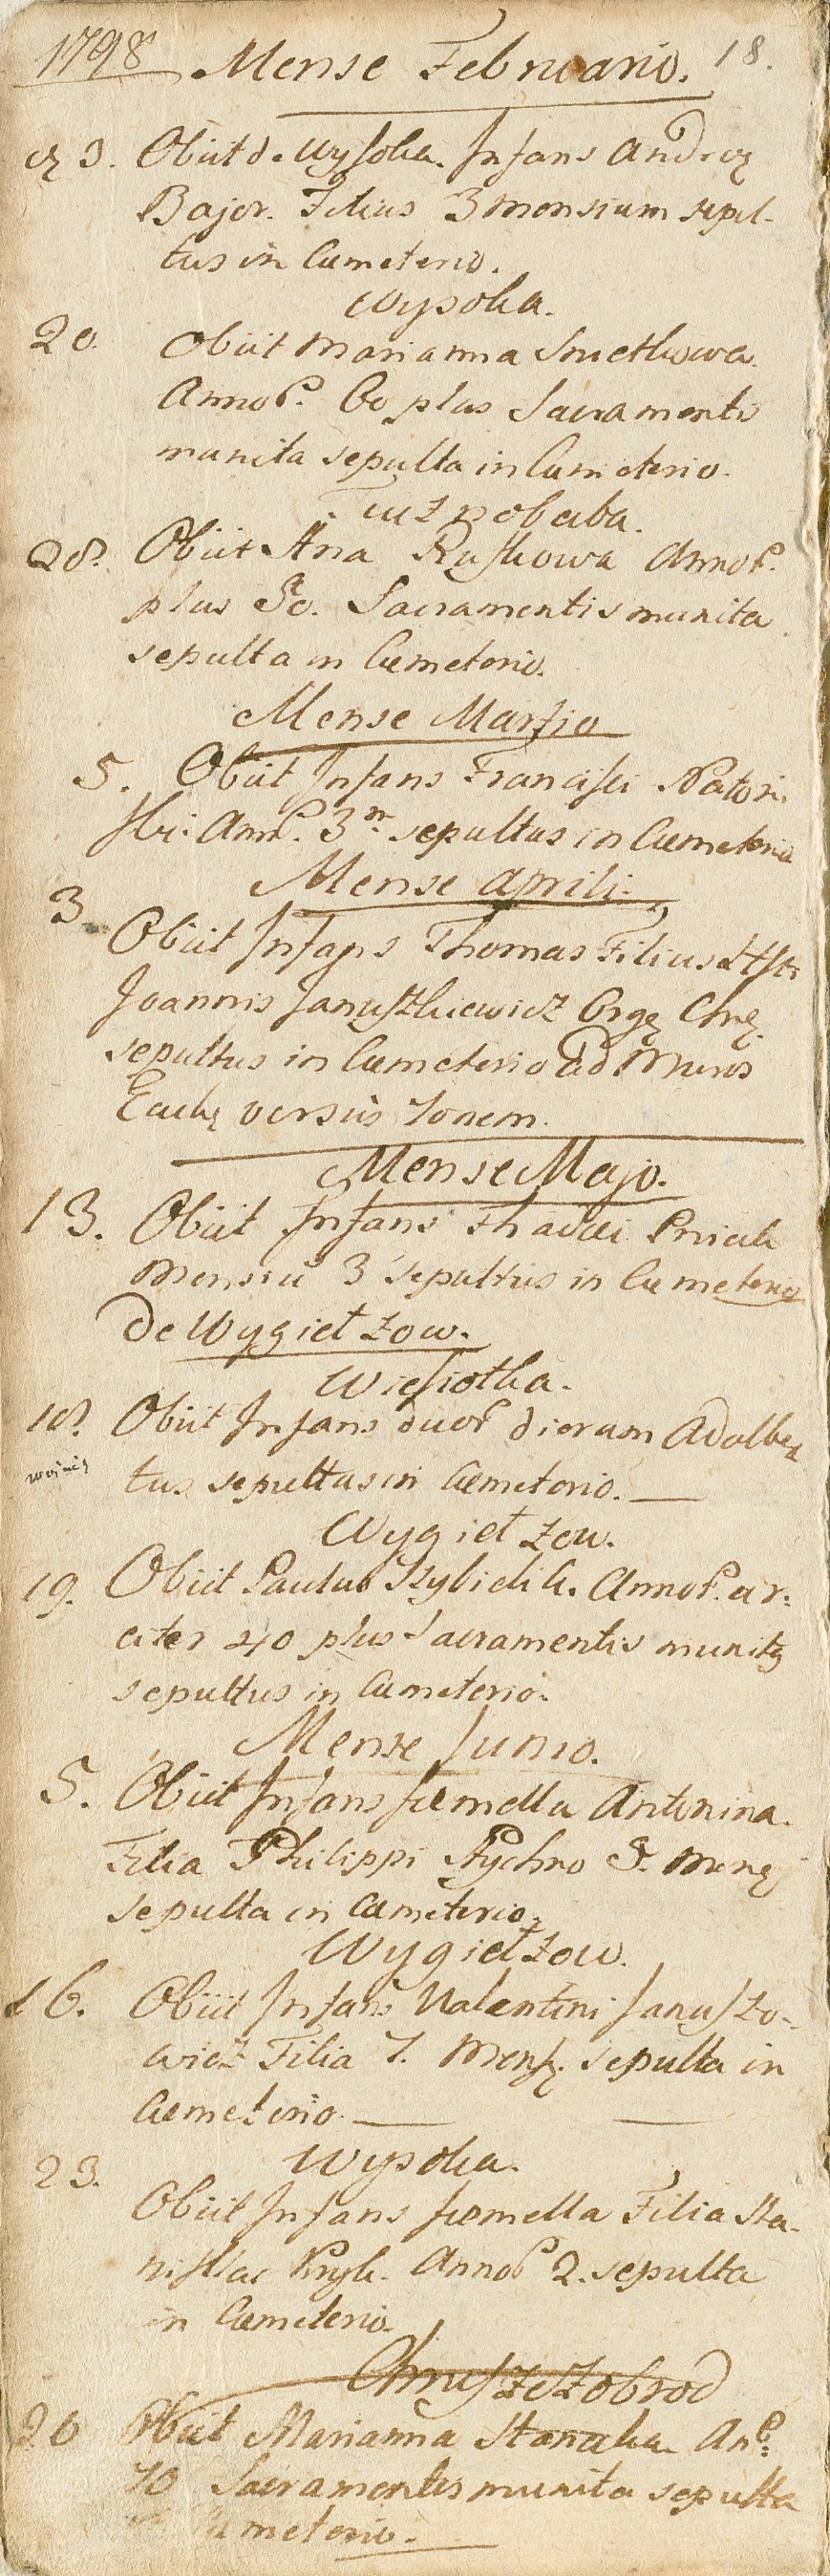 1798 Mense Februario. 18.
3. Obiit de Wysoka. Infans Andrez
Bajor. Filius 3 mensium sepul-
tus in Cæmeterio.
Wysoka.
20. Obiit Marianna Smetkowa.
Annor. 60 plus Sacramentis
munita sepulta in Cæmeterio.
Tuznobaba.
28. Obiit Ana Ruskowa Annor.
plus 50. Sacramentis munita
sepulta in Cæmeterio.
Mense Martio
5. Obiit Infans Francisci Natori-
ski: Ann. 3m sepultus in Cæmeterio
Mense Aprili.
3 Obiit Infans Thomas Filius
Joannis Januszkiewicz
sepultus in Cæmeterio ad Muros
Eccla versus
Mense Majo.
13. Obiit Infans Thadæi
Mensiu 3 sepultus in Cæmeterio
de Wygiełzow.
Wiesiołka.
18. Obiit Infans duor dierum Adalber
tus sepultus in Cæmeterio.
Wygiełzow.
19. Obiit Paulus Annor. cir:
citer 40 plus Sacramentis munitg
sepultus in Cæmeterio.
Mense Junio.
5. Obiit Infans fæmella Antonina.
Filia Philippi Rychno
sepulta in Cæmeterio.
Wygiełzow.
16. Obiit Infans Valentini Januszo-
wicz Filia 7. Mens. sepulta in
Cæmeterio.
Wysoka.
23. Obiit Infans fæmella Filia Sta-
nisłai Annor 2. sepulta
in Cæmeterio.
Chruszczobrod
26 Obiit Marianna Ann:
70 Sacramentis munita sepulta
in Cæmeterio.